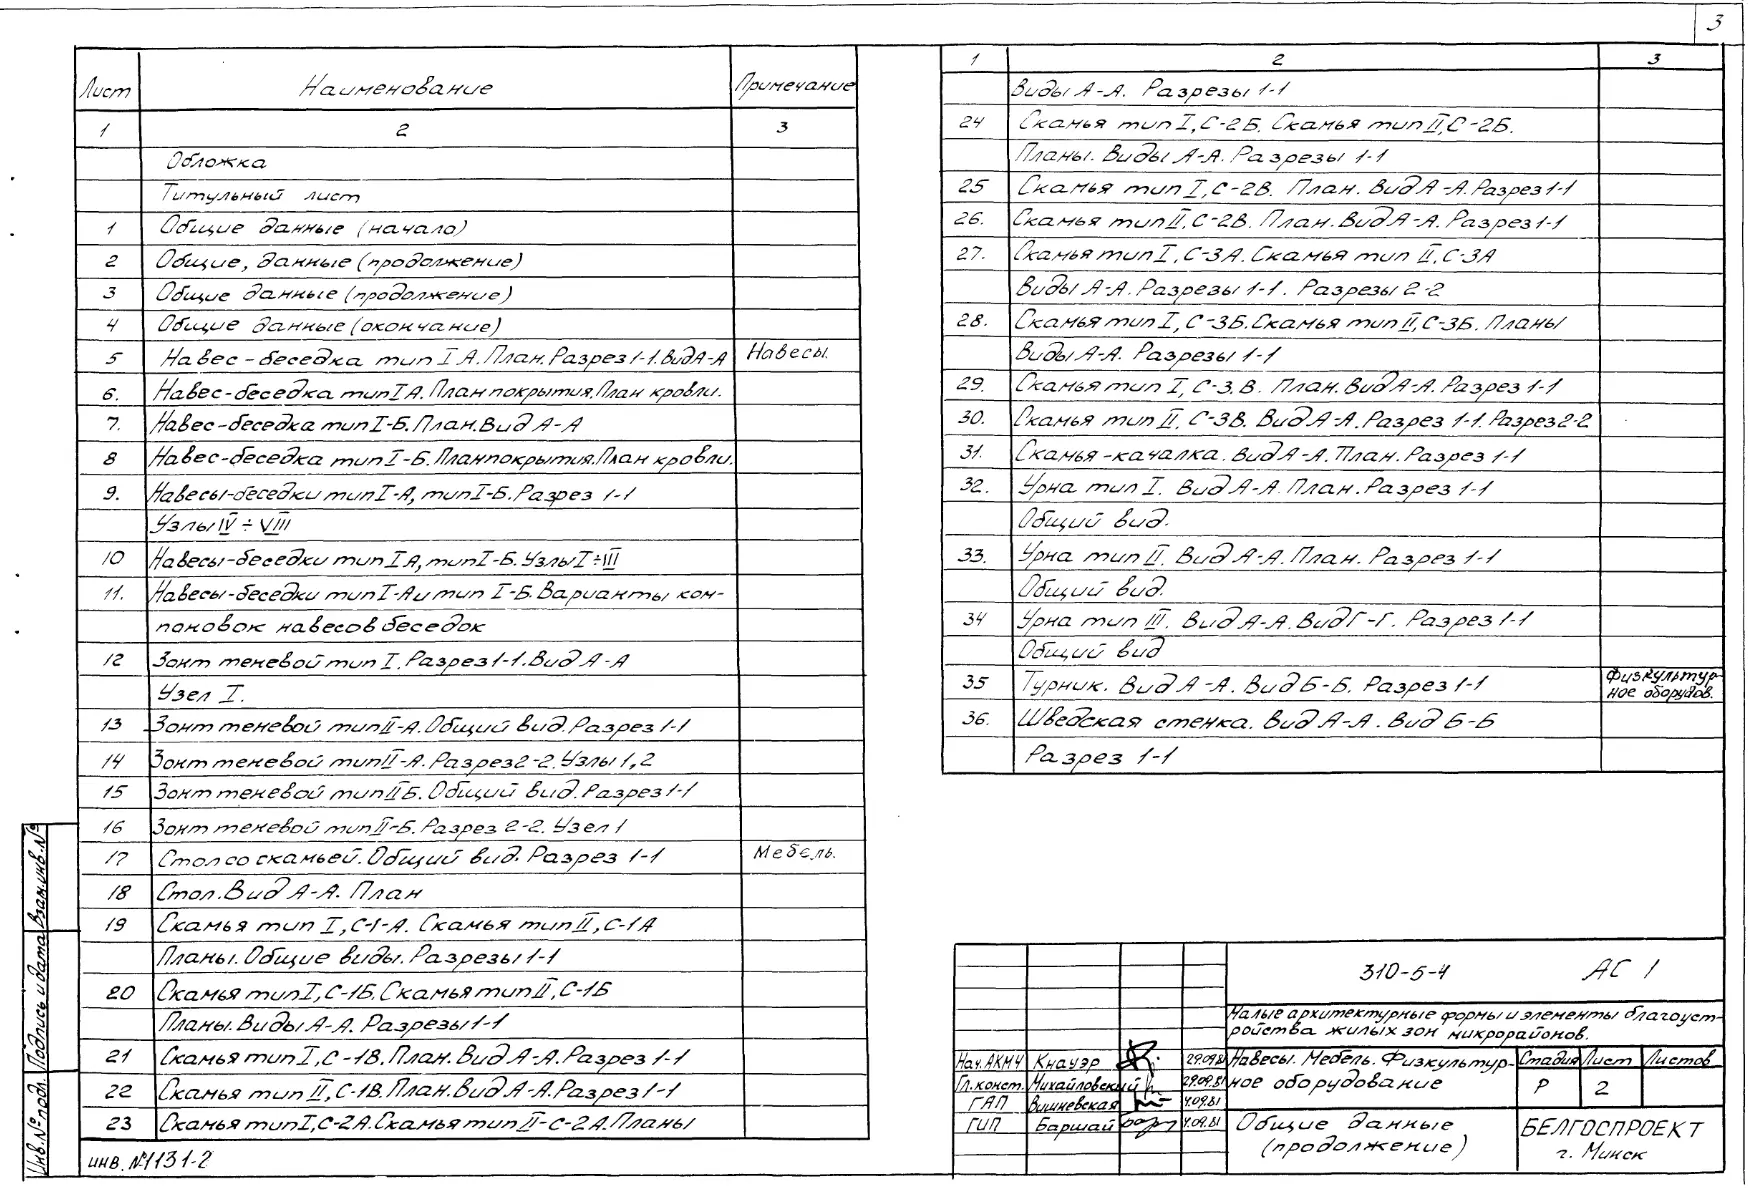 3
Лист Наименование Примечание
1 2 3
Обложка
Титульный лист
1 Общие данные (начало)
2 Общие, данные (продолжение)
3 Общие данные (продолжение)
4 Общие данные (окончание)
5 Навес - беседка тип I А. План. Разрез 1-1. Вид А-А Навесы.
6. Навес-беседка тип I А. План покрытия. План кровли.
7. Навес-беседка тип I-Б. План. Вид А-А
8 Навес-беседка тип I-Б. План покрытия. План кровли.
9. Навесы-беседки тип I-А, тип I-Б. Разрез 1-1
Узлы IV ÷ VIII
10 Навесы-беседки тип I А, тип I-Б. Узлы I÷III
11. Навесы-беседки тип I-А и тип I-Б. Варианты ком-
поновок навесов беседок
12 Зонт теневой тип I. Разрез 1-1. Вид А-А
Узел I.
13 Зонт теневой тип II-А. Общий вид. Разрез 1-1
14 Зонт теневой тип II-А. Разрез 2-2. Узлы 1,2
15 Зонт теневой тип II Б. Общий вид. Разрез 1-1
16 Зонт теневой тип II-Б. Разрез 2-2. Узел 1
17 Стол со скамьей. Общий вид. Разрез 1-1 Мебель.
18 Стол. Вид А-А. План
19 Скамья тип I, С-1-А. Скамья тип II, С-1А
Планы. Общие виды. Разрезы 1-1
20 Скамья тип I, С-1Б. Скамья тип II, С-1Б
Планы. Виды А-А. Разрезы 1-1
21 Скамья тип I, С-1В. План. Вид А-А. Разрез 1-1
22 Скамья тип II, С-1В. План. Вид А-А. Разрез 1-1
23 Скамья тип I, С-2А. Скамья тип II-С-2А. Планы
инв. №1131-2
Инв.№ подл. Подпись и дата Взам.инв.№
1 2 3
Виды А-А. Разрезы 1-1
24 Скамья тип I, С-2Б. Скамья тип II, С-2Б.
Планы. Виды А-А. Разрезы 1-1
25 Скамья тип I, С-2В. План. Вид А-А. Разрез 1-1
26. Скамья тип II, С-2В. План. Вид А-А. Разрез 1-1
27. Скамья тип I, С-3А. Скамья тип II, С-3А
Виды А-А. Разрезы 1-1. Разрезы 2-2
28. Скамья тип I, С-3Б. Скамья тип II, С-3Б. Планы
Виды А-А. Разрезы 1-1
29. Скамья тип I, С-3.В. План. Вид А-А. Разрез 1-1
30. Скамья тип II, С-3В. Вид А-А. Разрез 1-1. Разрез 2-2
31. Скамья-качалка. Вид А-А. План. Разрез 1-1
32. Урна тип I. Вид А-А. План. Разрез 1-1
Общий вид.
33. Урна тип II. Вид А-А. План. Разрез 1-1
Общий вид.
34 Урна тип III. Вид А-А. Вид Г-Г. Разрез 1-1
Общий вид
35 Турник. Вид А-А. Вид Б-Б. Разрез 1-1 Физкультур-
ное оборудов.
36. Шведская стенка. Вид А-А. Вид Б-Б
Разрез 1-1
310-5-4 АС 1
Малые архитектурные формы и элементы благоуст-
ройства жилых зон микрорайонов.
Нач. АКМЧ Кнауэр 29.09.81
Гл.конст. Михайловский 29.09.81
ГАП Вишневская 4.09.81
ГИП Баршай 4.09.81
Навесы. Мебель. Физкультур-
ное оборудование
Стадия Лист Листов
Р 2
Общие данные
(продолжение)
БЕЛГОСПРОЕКТ
г. Минск